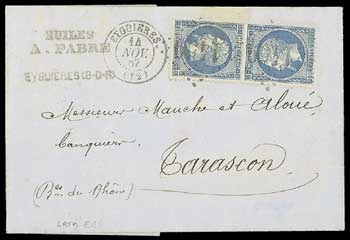 HUILES
A. FABRE
EYGUIÈRES (B-D-R)
EYGUIÈRES
14
NOV.
57
(12)
Messieurs Manche et Aloué
banquiers
Tarascon
(Bes. du Rhône)